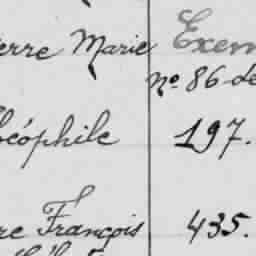 Marie Exem
nº 86 de
éophile 197.
François 435.